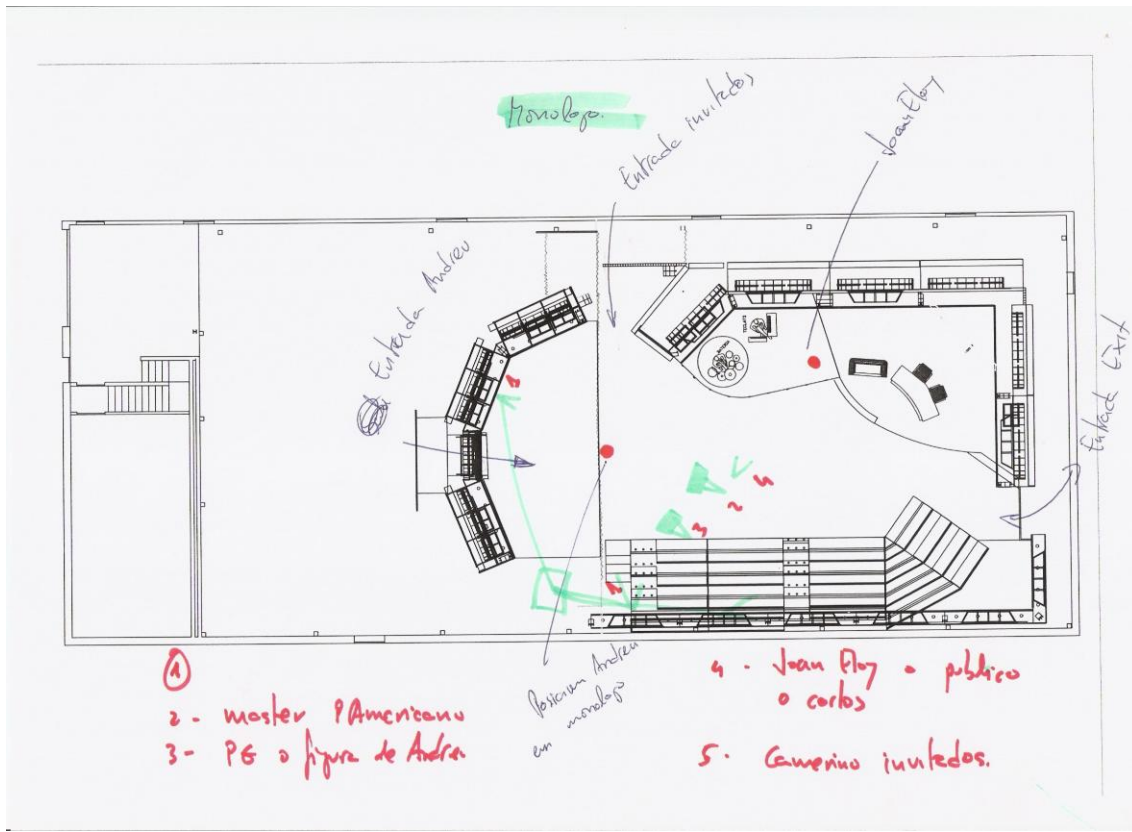 Monologo.
Entrada invitados
Joan Eloy
Entrada Andreu
Entrada Exit
TECLATS
BATERIA
3
4
2
3
1
Posicion Andreu
en monologo
1
2 - master PAmericano
3 - PG o figura de Andreu
4 - Joan Eloy o publico
o cortos
5. Camerino invitados.